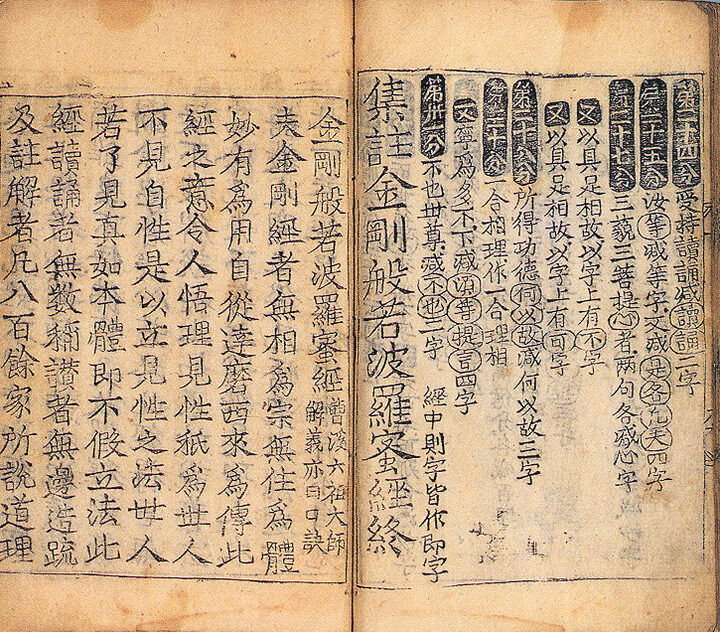 第二十四分受持讀誦減讀誦二字
第二十五分汝等減等字又減是名凡夫四字
第二十七分三藐三菩提心者兩句各減心字
又以具足相故以字上有不字
又以具足相故以字上有可字
第二十八分所得功德何以故減何以故三字
第三十分一合相理作一合理相
又寧爲多不下減須菩提言四字
第卅一分不也世尊減不也二字 經中則字皆作即字
集註金剛般若波羅蜜經終
金剛般若波羅蜜經曹溪六祖大師
解義亦曰口訣
夫金剛經者無相爲宗無住爲體
妙有爲用自從達磨西來爲傳此
經之意令人悟理見性秖爲世人
不見自性是以立見性之法世人
若了見真如本體即不假立法此
經讀誦者無数稱讃者無邊造疏
及註解者凡八百餘家所說道理